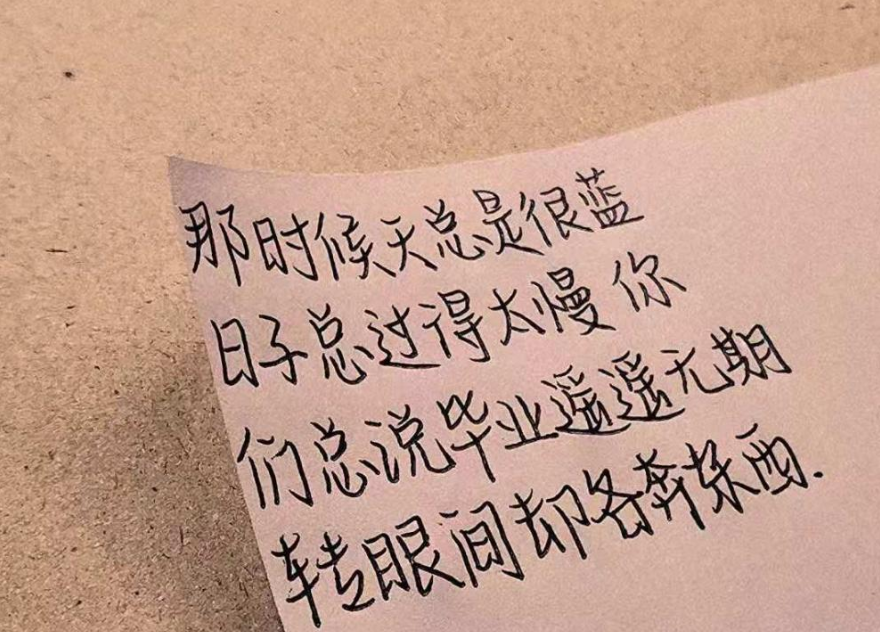 那时候天总是很蓝
日子总过得太慢 你
们总说毕业遥遥无期
转眼间却各奔东西.